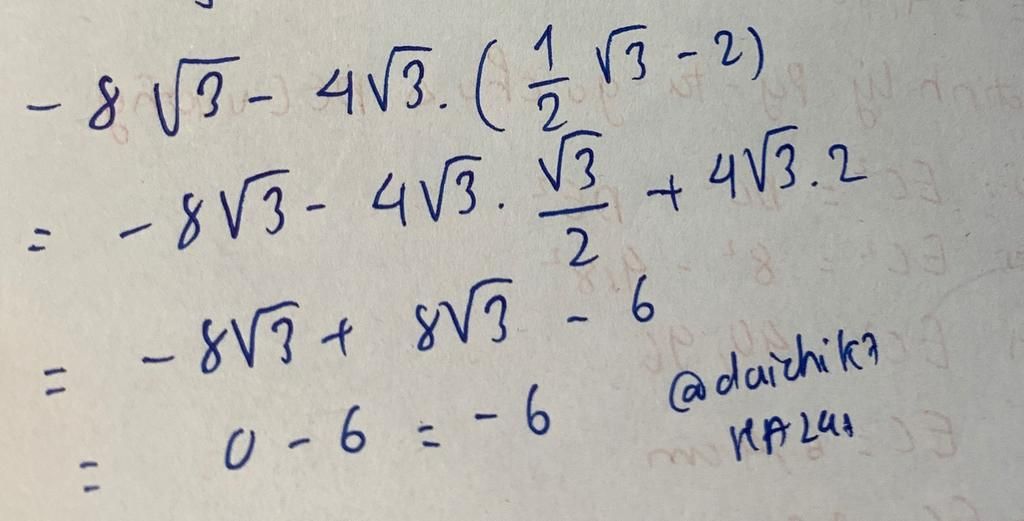 - 8√3 - 4√3. (1/2 √3 - 2)
= - 8√3 - 4√3 . √3/2 + 4√3 . 2
= - 8√3 + 8√3 - 6
= 0 - 6 = - 6
@daichik7